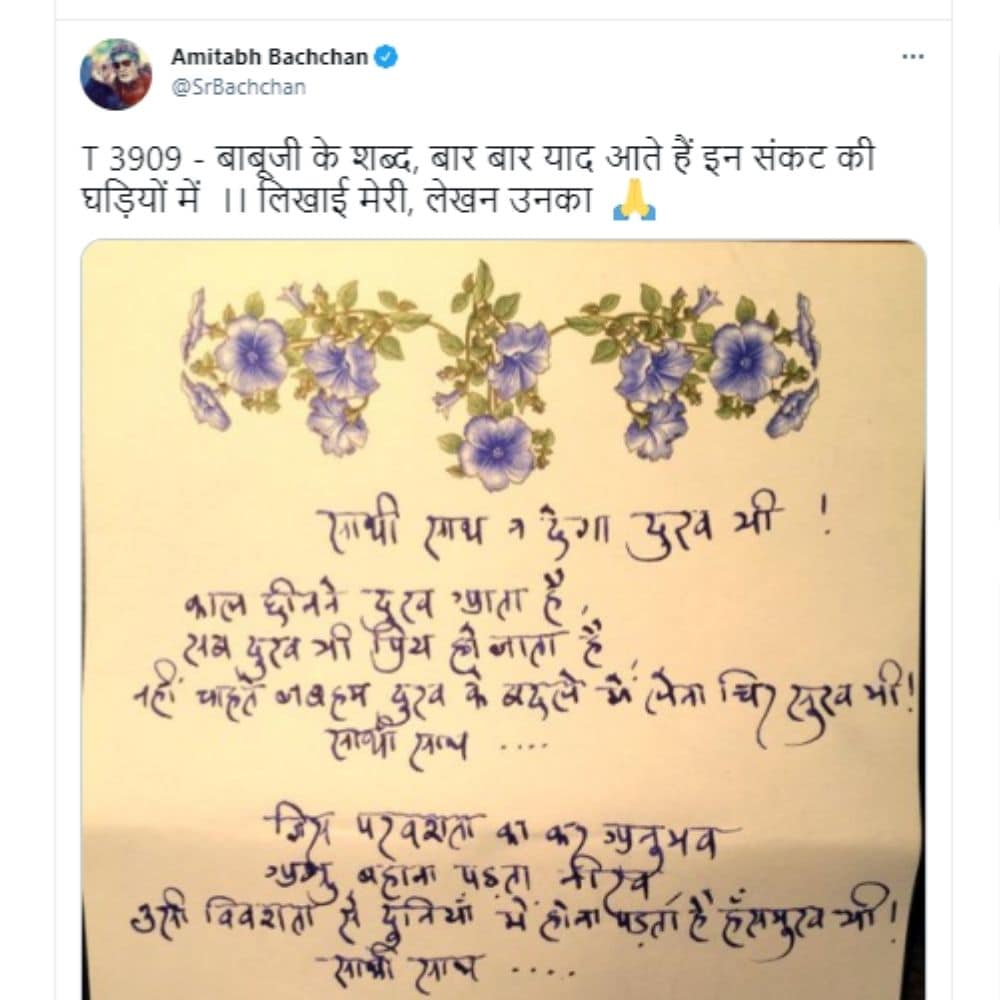 Amitabh Bachchan
@SrBachchan
T 3909 - बाबूजी के शब्द, बार बार याद आते हैं इन संकट की
घड़ियों में ।। लिखाई मेरी, लेखन उनका 🙏
साथी साथ न देगा दुख भी !
काल छीनने दुख आता है,
जब दुख भी प्रिय हो जाता है,
नहीं चाहते जब हम दुख के बदले में लेना चिर सुख भी !
साथी साथ ....
जिस परवशता का कर अनुभव
अश्रु बहाना पड़ता नीरव
उसी विवशता से दुनियाँ में होना पड़ता है हँसमुख भी !
साथी साथ ....